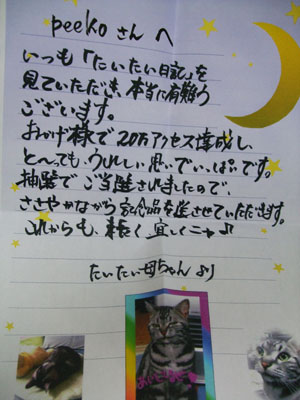 peeko さん へ
いつも「たいたい日記」を
見ていただき、本当に有難う
ございます。
おかげ様で20万アクセス達成し、
と〜っても、ウルしい思いでいっぱいです。
抽選でご当選されましたので、
ささやかながら記念品を送らせていただきます。
これからも、末長く宜しくニャ♪
たいたい母ちゃん より